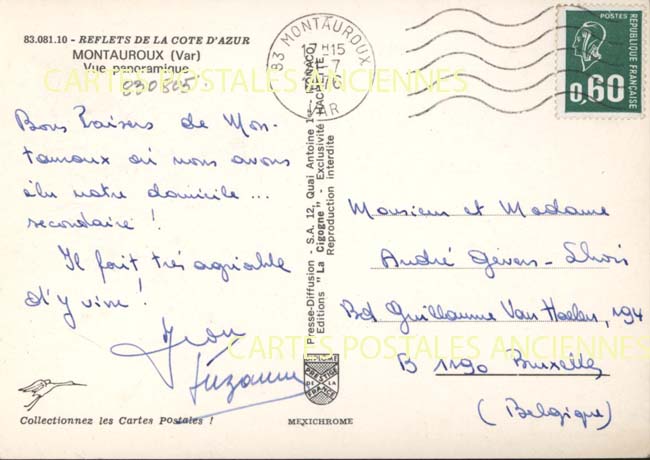 83.081.10 - REFLETS DE LA COTE D'AZUR
MONTAUROUX (Var)
Vue panoramique
830805
CARTES POSTALES ANCIENNES
Bons baisers de Mon-
tauroux où nous avons
élu notre domicile...
secondaire !
Il fait très agréable
d'y vivre !
Suzanne
Collectionnez les Cartes Postales !
83 MONTAUROUX
VAR
Presse-Diffusion - S.A. 12, Quai Antoine 1er - MONACO
Editions "La Cigogne" - Exclusivité HACHETTE
Reproduction interdite
PRESTIGE
DE LA
FRANCE
MEXICHROME
POSTES
REPUBLIQUE FRANÇAISE
0,60
Monsieur et Madame
André
Bd Guillaume Van Haelen, 194
CARTES POSTALES ANCIENNES
B 1190 Bruxelles
(Belgique)